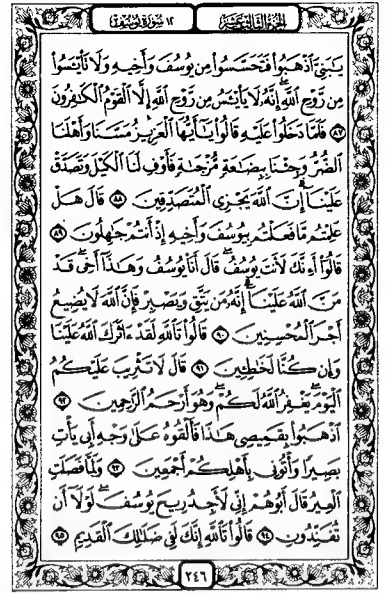 الجزء الثالث عشر
١٢ سورة يوسف
يَـٰبَنِىَّ ٱذْهَبُوا۟ فَتَحَسَّسُوا۟ مِن يُوسُفَ وَأَخِيهِ وَلَا تَا۟يْـَٔسُوا۟
مِن رَّوْحِ ٱللَّهِ إِنَّهُۥ لَا يَا۟يْـَٔسُ مِن رَّوْحِ ٱللَّهِ إِلَّا ٱلْقَوْمُ ٱلْكَـٰفِرُونَ
٨٧ فَلَمَّا دَخَلُوا۟ عَلَيْهِ قَالُوا۟ يَـٰٓأَيُّهَا ٱلْعَزِيزُ مَسَّنَا وَأَهْلَنَا
ٱلضُّرُّ وَجِئْنَا بِبِضَـٰعَةٍ مُّزْجَىٰةٍ فَأَوْفِ لَنَا ٱلْكَيْلَ وَتَصَدَّقْ
عَلَيْنَآ إِنَّ ٱللَّهَ يَجْزِى ٱلْمُتَصَدِّقِينَ ٨٨ قَالَ هَلْ
عَلِمْتُم مَّا فَعَلْتُم بِيُوسُفَ وَأَخِيهِ إِذْ أَنتُمْ جَـٰهِلُونَ ٨٩
قَالُوٓا۟ أَءِنَّكَ لَأَنتَ يُوسُفُ قَالَ أَنَا۠ يُوسُفُ وَهَـٰذَآ أَخِى قَدْ
مَنَّ ٱللَّهُ عَلَيْنَآ إِنَّهُۥ مَن يَتَّقِ وَيَصْبِرْ فَإِنَّ ٱللَّهَ لَا يُضِيعُ
أَجْرَ ٱلْمُحْسِنِينَ ٩٠ قَالُوا۟ تَٱللَّهِ لَقَدْ ءَاثَرَكَ ٱللَّهُ عَلَيْنَا
وَإِن كُنَّا لَخَـٰطِـِٔينَ ٩١ قَالَ لَا تَثْرِيبَ عَلَيْكُمُ
ٱلْيَوْمَ يَغْفِرُ ٱللَّهُ لَكُمْ وَهُوَ أَرْحَمُ ٱلرَّٰحِمِينَ ٩٢
ٱذْهَبُوا۟ بِقَمِيصِى هَـٰذَا فَأَلْقُوهُ عَلَىٰ وَجْهِ أَبِى يَأْتِ
بَصِيرًا وَأْتُونِى بِأَهْلِكُمْ أَجْمَعِينَ ٩٣ وَلَمَّا فَصَلَتِ
ٱلْعِيرُ قَالَ أَبُوهُمْ إِنِّى لَأَجِدُ رِيحَ يُوسُفَ لَوْلَآ أَن
تُفَنِّدُونِ ٩٤ قَالُوا۟ تَٱللَّهِ إِنَّكَ لَفِى ضَلَـٰلِكَ ٱلْقَدِيمِ ٩٥
٢٤٦